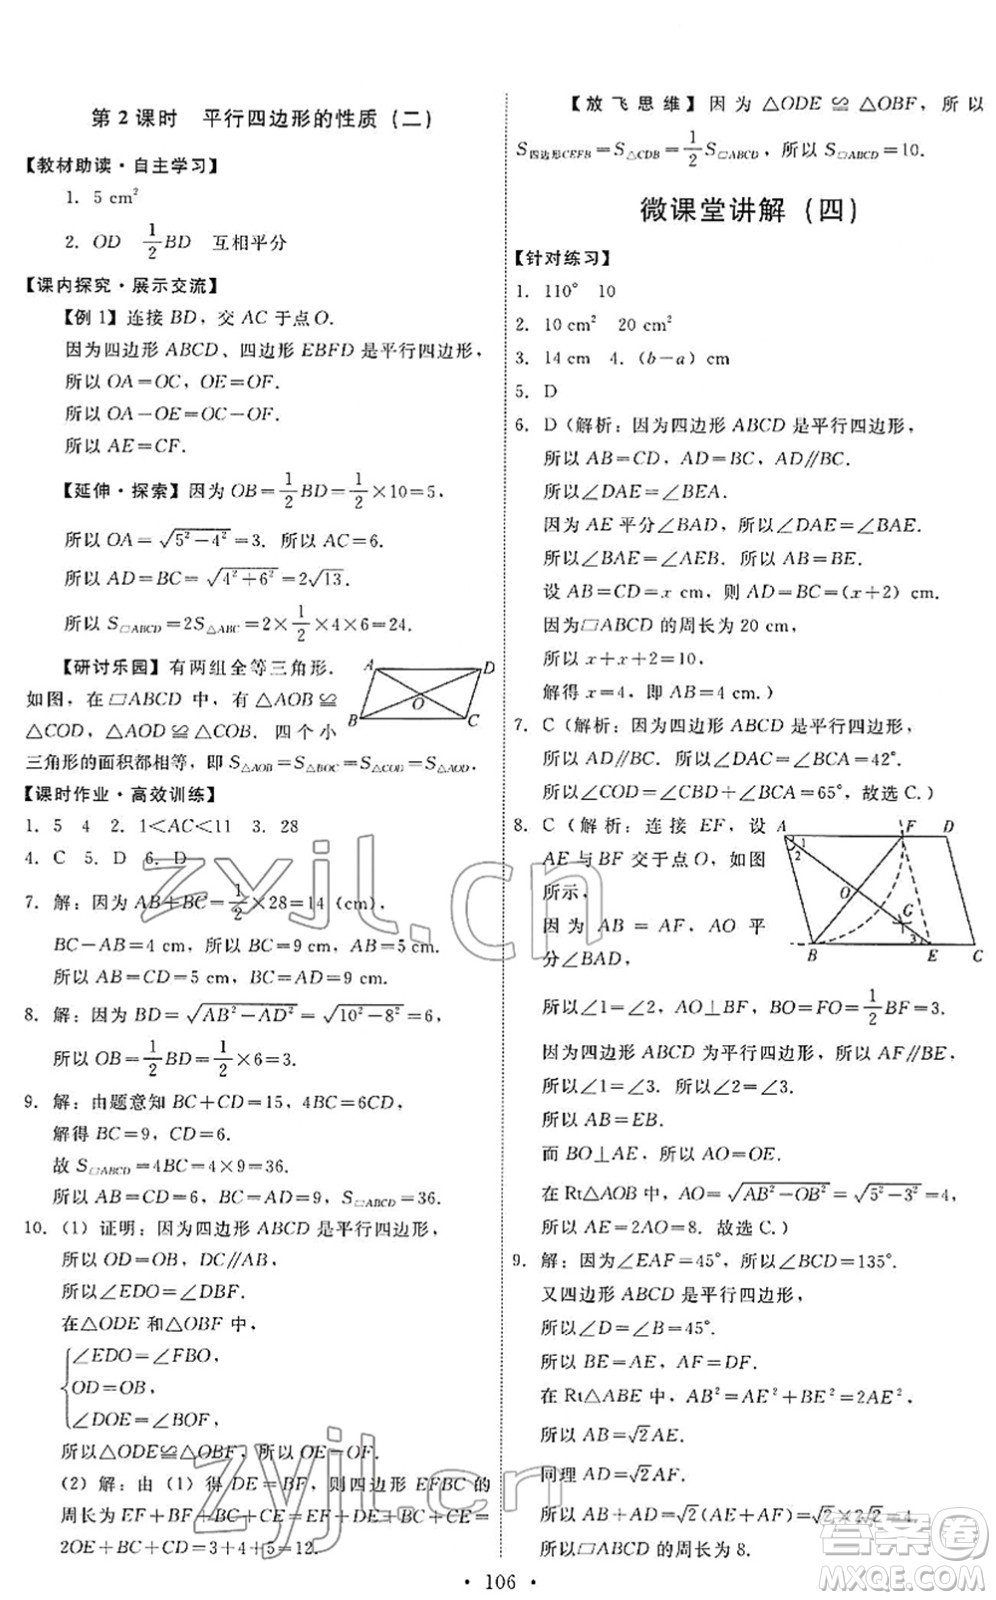 第2课时 平行四边形的性质(二)
【教材助读·自主学习】
1. 5 cm²
2. OD 1/2 BD 互相平分
【课内探究·展示交流】
【例1】连接BD,交AC于点O.
因为四边形ABCD、四边形EBFD是平行四边形,
所以OA=OC,OE=OF.
所以OA-OE=OC-OF.
所以AE=CF.
【延伸·探索】因为OB=1/2 BD=1/2×10=5,
所以OA=√(5²-4²)=3. 所以AC=6.
所以AD=BC=√(4²+6²)=2√13.
所以S□ABCD=2S△ABC=2×1/2×4×6=24.
【研讨乐园】有两组全等三角形.
如图,在□ABCD中,有△AOB≌
△COD,△AOD≌△COB. 四个小
三角形的面积都相等,即S△AOB=S△BOC=S△COD=S△AOD.
A D O B C
【课时作业·高效训练】
1. 5 4 2. 1<AC<11 3. 28
4. C 5. D 6. D
7. 解:因为AB+BC=1/2×28=14(cm),
BC-AB=4 cm,所以BC=9 cm,AB=5 cm.
所以AB=CD=5 cm,BC=AD=9 cm.
8. 解:因为BD=√(AB²-AD²)=√(10²-8²)=6,
所以OB=1/2 BD=1/2×6=3.
9. 解:由题意知BC+CD=15,4BC=6CD,
解得BC=9,CD=6.
故S□ABCD=4BC=4×9=36.
所以AB=CD=6,BC=AD=9,S□ABCD=36.
10. (1)证明:因为四边形ABCD是平行四边形,
所以OD=OB,DC∥AB.
所以∠EDO=∠DBF.
在△ODE和△OBF中,
∠EDO=∠FBO,
OD=OB,
∠DOE=∠BOF,
所以△ODE≌△OBF,所以OE=OF.
(2)解:由(1)得DE=BF,则四边形EFBC的
周长为EF+BF+BC+CE=EF+DE+BC+CE=
2OE+BC+CD=3+4+5=12.
【放飞思维】因为△ODE≌△OBF,所以
S四边形CEFB=S△CDB=1/2 S□ABCD,所以S□ABCD=10.
微课堂讲解(四)
【针对练习】
1. 110° 10
2. 10 cm² 20 cm²
3. 14 cm 4. (b-a) cm
5. D
6. D(解析:因为四边形ABCD是平行四边形,
所以AB=CD,AD=BC,AD∥BC.
所以∠DAE=∠BEA.
因为AE平分∠BAD,所以∠DAE=∠BAE.
所以∠BAE=∠AEB. 所以AB=BE.
设AB=CD=x cm,则AD=BC=(x+2) cm.
因为□ABCD的周长为20 cm,
所以x+x+2=10,
解得x=4,即AB=4 cm.)
7. C(解析:因为四边形ABCD是平行四边形,
所以AB∥DC. 所以∠DCA=∠BAC=42°.
所以∠COD=∠CBD+∠BCA=65°,故选C.)
8. C(解析:连接EF,设
AE与BF交于点O,如图
所示,
因为AB=AF,AO平
分∠BAD,
A F D 1 2 O G 3 B E C
所以∠1=∠2,AO⊥BF,BO=FO=1/2 BF=3.
因为四边形ABCD为平行四边形,所以AF∥BE,
所以∠1=∠3,所以∠2=∠3,
所以AB=EB.
而BO⊥AE,所以AO=OE.
在Rt△AOB中,AO=√(AB²-OB²)=√(5²-3²)=4,
所以AE=2AO=8. 故选C.)
9. 解:因为∠EAF=45°,所以∠BCD=135°.
又四边形ABCD是平行四边形,
所以∠D=∠B=45°.
所以BE=AE,AF=DF.
在Rt△ABE中,AB²=AE²+BE²=2AE²,
所以AB=√2AE.
同理AD=√2AF.
所以AB+AD=√2(AE+AF)=√2×2√2=4.
所以□ABCD的周长为8.
zyjl.cn
zyjl.cn
答案圈
MXQE.COM
· 106 ·